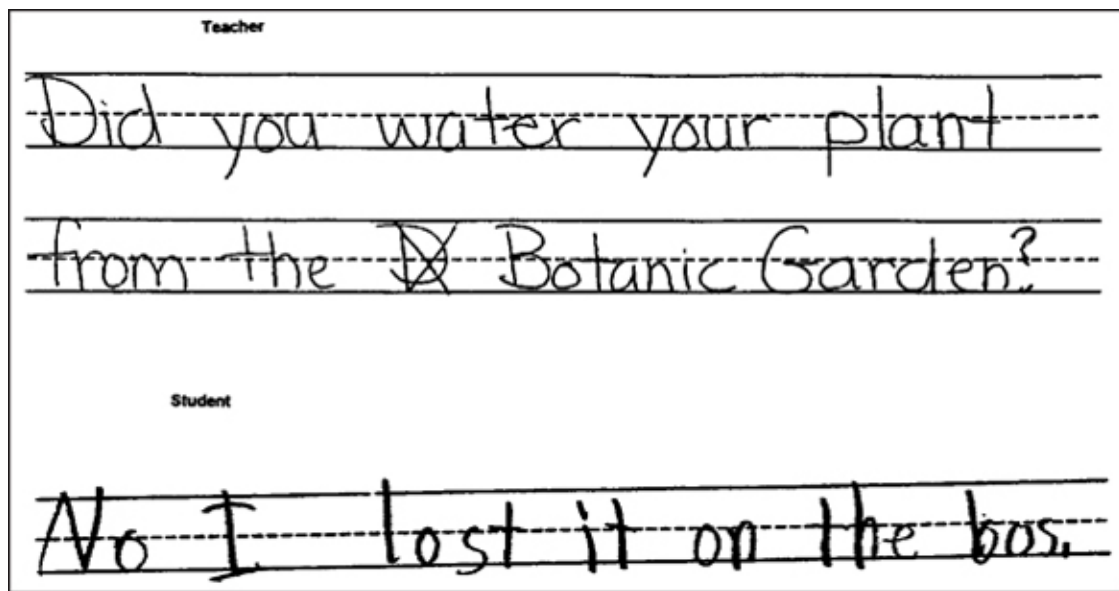 Teacher
Did you water your plant
from the Botanic Garden?
Student
No I lost it on the bos.